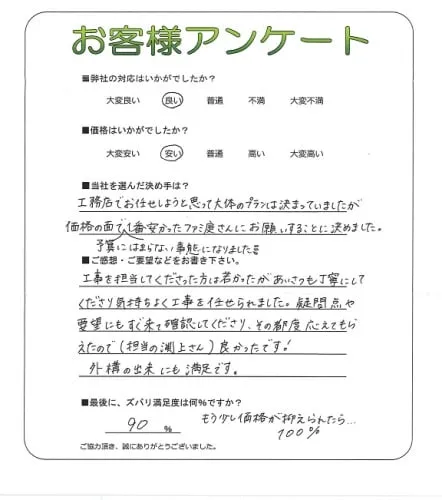 お客様アンケート
■弊社の対応はいかがでしたか?
大変良い 良い 普通 不満 大変不満
■価格はいかがでしたか?
大変安い 安い 普通 高い 大変高い
■当社を選んだ決め手は?
工務店でお任せしようと思って大体のプランは決まっていましたが
価格の面で1番安かったファミ庭さんにお願いすることに決めました。
予算にはまらない事態になりました!!
■ご感想・ご要望などをお書き下さい。
工事を担当してくださった方は若かったがあいさつも丁寧にして
くださり気持ちよく工事を任せられました。疑問点や
要望にもすぐ来て確認してくださり、その都度応えてもら
えたので(担当の渕上さん)良かったです!
外構の出来にも満足です。
■最後に、ズバリ満足度は何%ですか?
90 % もう少し価格が抑えられたら...
100%
ご協力頂き、誠にありがとうございました。